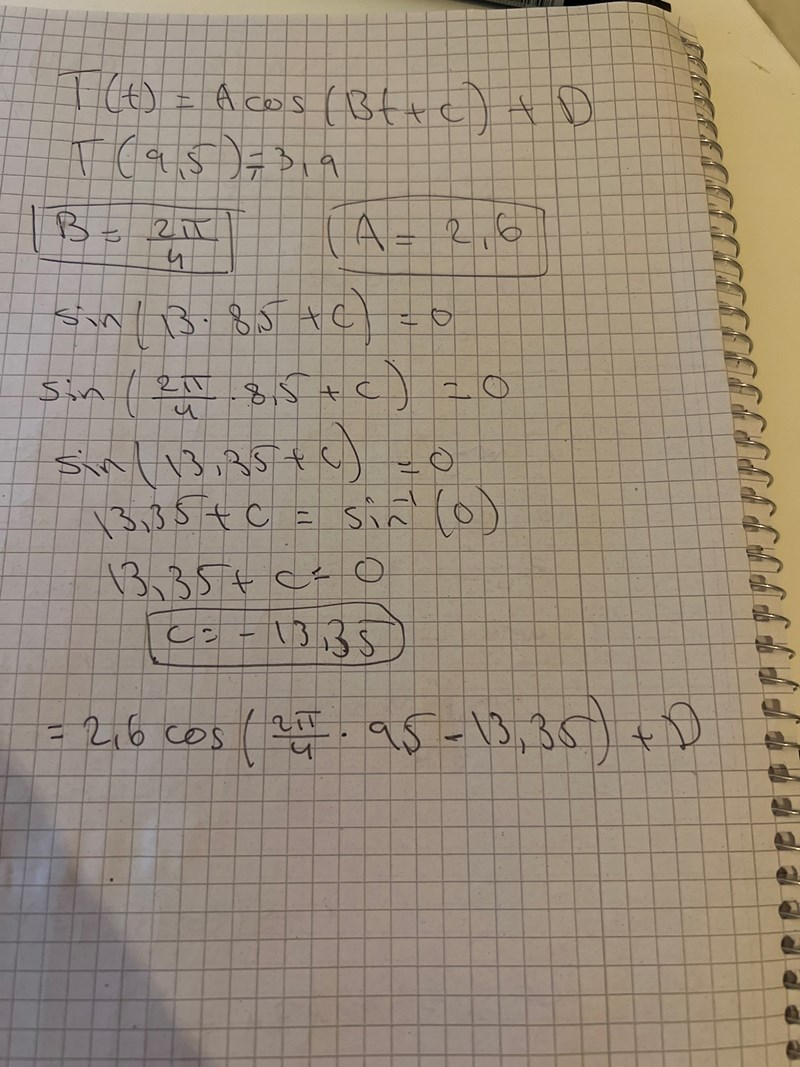 T(t) = A cos(Bt + C) + D
T(9,5) = 3,9
B = 2π/4 A = 2,6
sin(B · 8,5 + C) = 0
sin(2π/4 · 8,5 + C) = 0
sin(13,35 + C) = 0
13,35 + C = sin⁻¹(0)
13,35 + C = 0
C = -13,35
= 2,6 cos(2π/4 · 9,5 - 13,35) + D